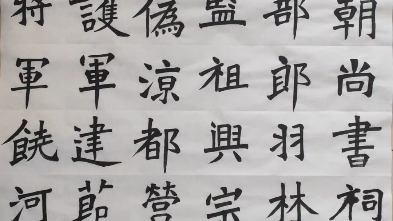 朝尚書祠
部郎羽林
監祖興宗
偽涼都營
護軍建節
將軍饒河